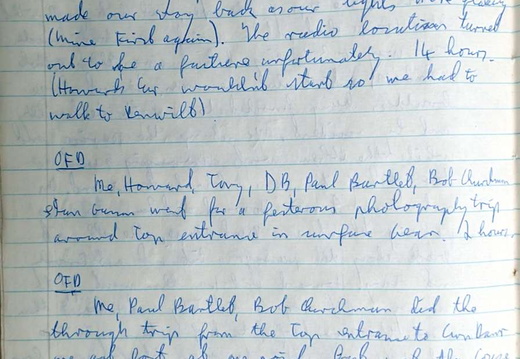 made our way back as our lights were
(mine first again). The radio location turned
out to be a failure unfortunately. 14 hours.
(Howards car wouldn't start so we had to
walk to
OFD
Me, Howard, Tony, DB, Paul Bartlett, Bob Churchman
Stan went for a photography trip
around Top entrance in surface gear. 2 hours
OFD
Me, Paul Bartlett, Bob Churchman did the
through trip from the Top entrance to Cwm Dwr